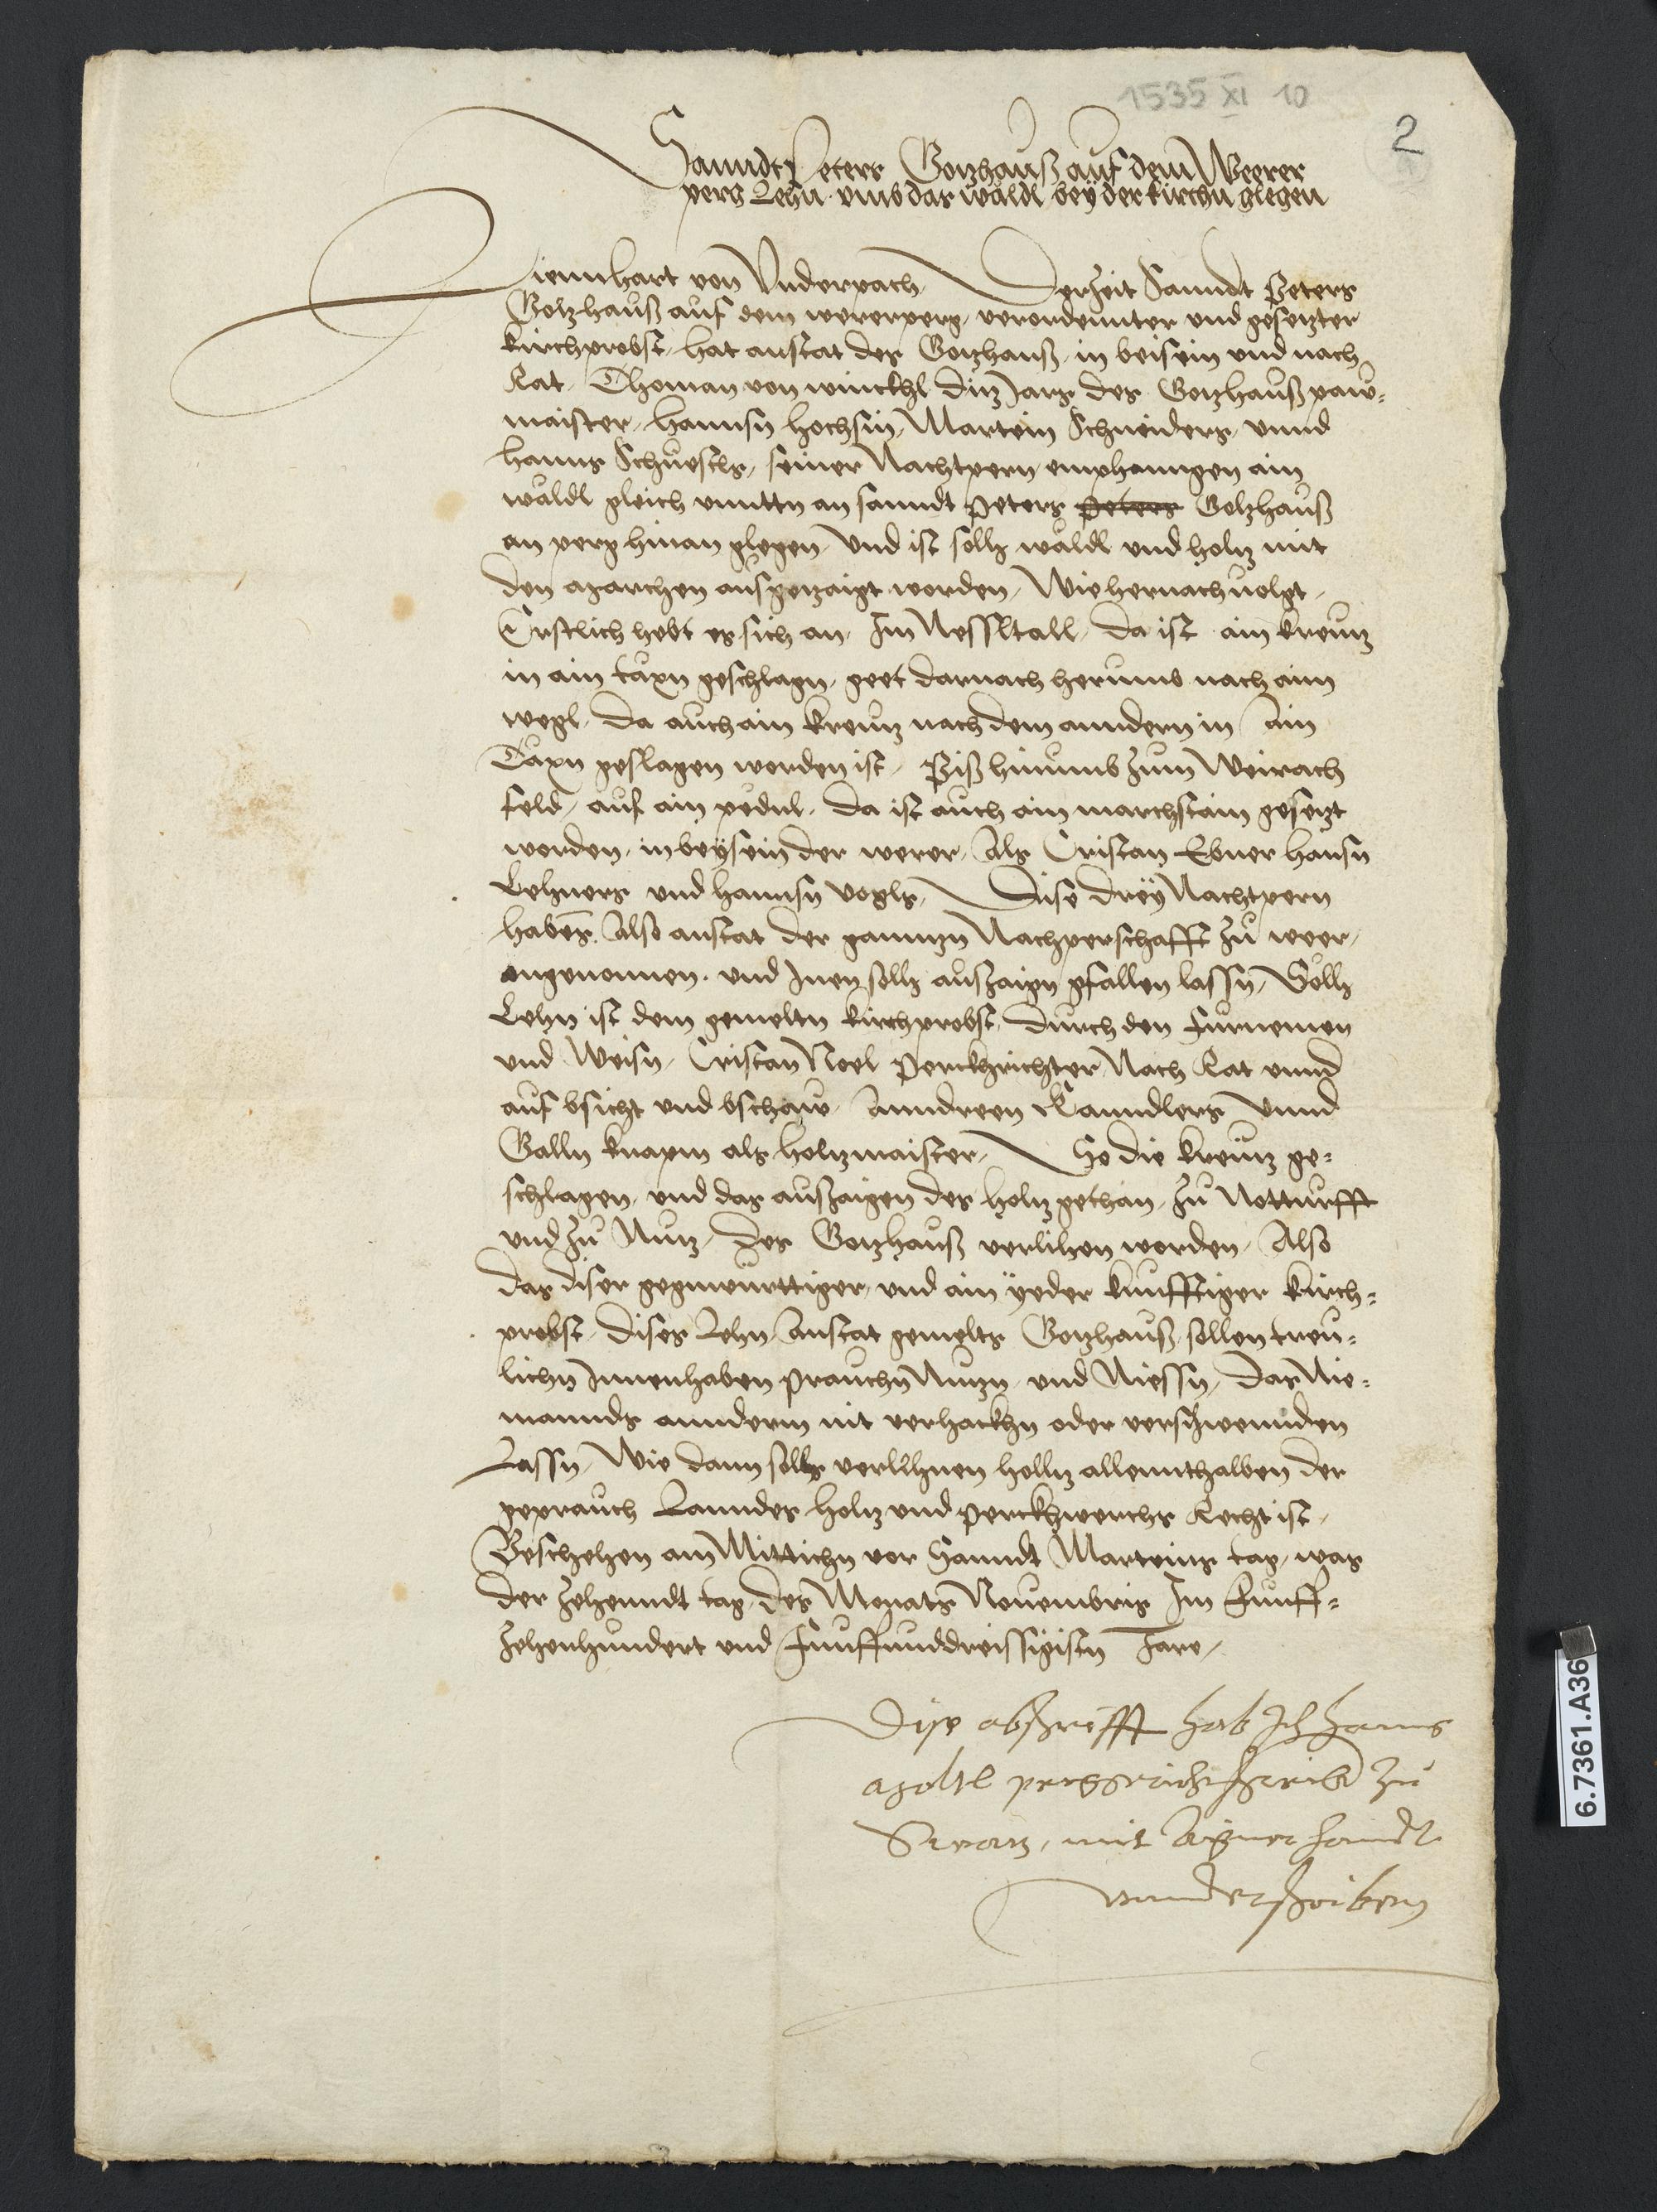 1535 XI 10
2
Sanndt Peters Gotzhauß auf dem Weerer
perg Lehn umb das wäldl bey der kirchn glegen
Liennhart von Underpach, Derzeit Sanndt Peters
Gotzhauß auf dem wererperg, verordennter und gesetzter
kirchprobst, hat anstat des Gotzhauß, in beisein und nach
Rat, Thoman von winckhl ditz Jars des Gotzhauß paw-
maister, Hannsn Hochsin, Martein Schneiders, unnd
Hanns Schuestls, seiner Nachtpern emphanngen ain
wäldl gleich unnttn an sanndt Peters peters Gotzhauß
an perg hinan glegen, Und ist sollh wäldl und holtz mit
den marchen ausgetzaigt worden, Wie hernach volgt,
Erstlich hebt es sich an, Im Nessltall, da ist ain kreutz
in ain taxn geschlagn, geet darnach herumb nach aim
wegl, da auch ain kreutz nach dem anndern in ain
Taxn geslagen worden ist, Piß hinumb zum Weirach
feld, auf ain pedul, da ist auch ain marchstain gesetzt
worden, in beysein der werer, Als Cristan Ebner Hansn
Lehners und Hannsn Vogls, Dise drey Nachtpern
habens Also anstat der ganntzn Nachperschafft zu weer,
angenomen, und Inen sollh auszaign gfallen lassn, Sollh
Lehn ist dem gemeltn kirchprobst, durch den Furnemen
und Weisn, Cristan Noel Perckhrichter, Nach Rat unnd
auf bsicht und bschaw, Anndreen Kanndlers unnd
Galln knapm als holtzmaister, So die kreutz ge-
schlagen, und das auszaigen des holtz gethan, zu Notturfft
und zu Nutz, des Gotzhauß verlihen worden, Also
das diser gegnwurttiger, und ain yeder kunfftiger kirch-
probst, dises Lehn, Anstat gemelts Gotzhauß, sollen treu-
lichn Innenhaben prauchn Nutzn und Niessn, das Nie-
mannds annderm nit verhackhn oder verschwennden
Lassn, Wie dann sollhs verlihnen holtz allennthalben der
geprauch Lanndes holtz und perckhwerchs Recht ist,
Geschehen am Mittichn vor Sanndt Marteins tag, was
der zehenndt tag, des Monats Novembris Im Funff-
zehenhundert und Funffunddreissigistn Jare,
Dise abschrifft hab Ich Hanns
perggerichtschreiber zu
Swatz, mit aigner hanndt
unnderschriben
6.7361.A36